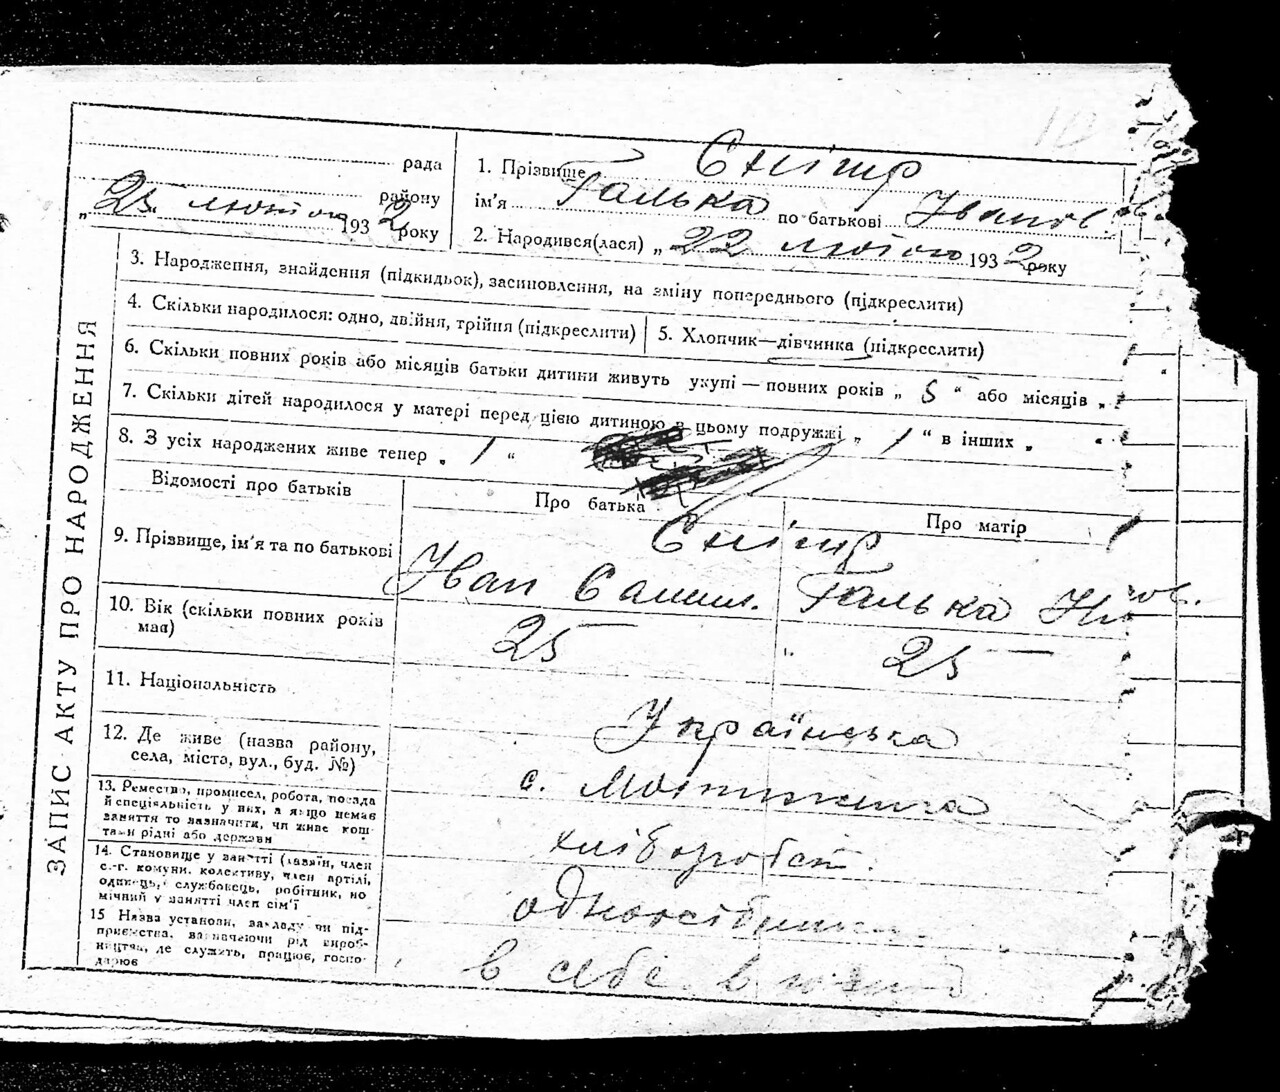 рада
району
„ 25 " лютого 1932 року
1. Прізвище Снігир
ім'я Галька по батькові Іванов.
2. Народився(лася) „ 22 лютого 1932 року
ЗАПИС АКТУ ПРО НАРОДЖЕННЯ
3. Народження, знайдення (підкидьок), засиновлення, на зміну попереднього (підкреслити)
4. Скільки народилося: одно, двійня, трійня (підкреслити)
5. Хлопчик—дівчинка (підкреслити)
6. Скільки повних років або місяців батьки дитини живуть укупі — повних років „ 5 " або місяців „
7. Скільки дітей народилося у матері перед цією дитиною в цьому подружжі „ 1 " в інших „ "
8. З усіх народжених живе тепер „ 1 "
Відомості про батьків
Про батька
Про матір
9. Прізвище, ім'я та по батькові
Снігир
Іван Самил. Галька
10. Вік (скільки повних років має)
25 " 25
11. Національність
Українська
12. Де живе (назва району,
села, міста, вул., буд. №)
с. Мотижина
13. Ремество, промисел, робота, посада
й спеціяльність у них, а якщо немає
заняття то зазначити, чи живе кош-
тами рідні або держави
хлібороб
14. Становище у занятті (хазяїн, член
с.-г. комуни, колективу, член артілі,
одинець, службовець, робітник, но
мічний у занятті член сім'ї
15 Назва установи, закладу чи під-
приємства, зазначаючи рід вироб-
ництва, де служить, працює, госпо-
дарює
в себе в